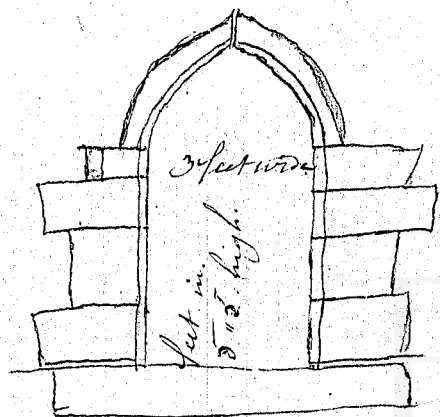 3 feet wide
feet in.
high.